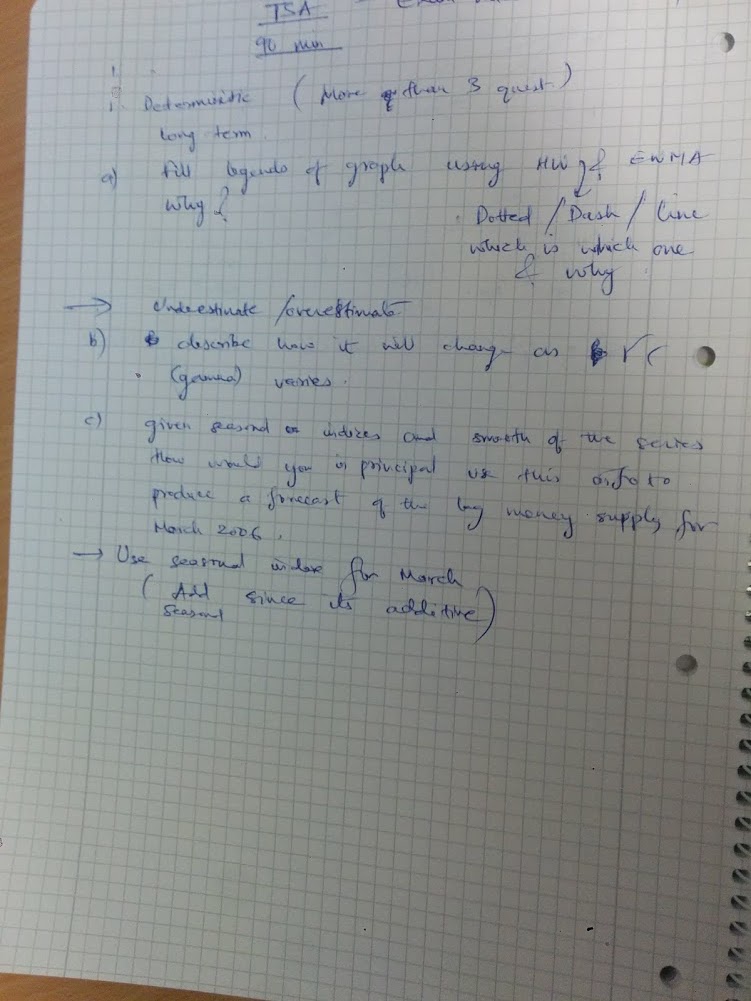 TSA - Exam
90 min
1. Deterministic (More than 3 quest.)
long term.
a) Fill legends of graph using HW & EWMA
Why?
Dotted / Dash / line
which is which one
& why.
→ Underestimate / overestimate
b) describe how it will change as r
(gamma) varies.
c) given seasonal indizes and smooth of the series
How would you in principal use this info to
produce a forecast of the log money supply for
March 2006.
→ Use seasonal index for March
(Add since its additive)
seasonal